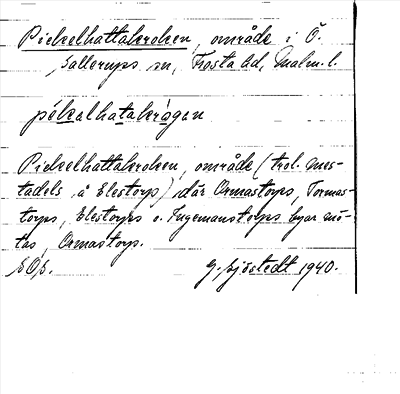 Pickelhattakroken, område i Ö.
Sallerups sn, Frosta hd, Malm. l.
pékalhatakrågan
Pickelhattakroken, område (trol. mes-
tadels å Elestorp) där Ormastorps, Tormas-
torps, Elestorps o. Ingemanstorps byar mö-
tas, Ormastorp.
SOS. G. Sjöstedt 1940.